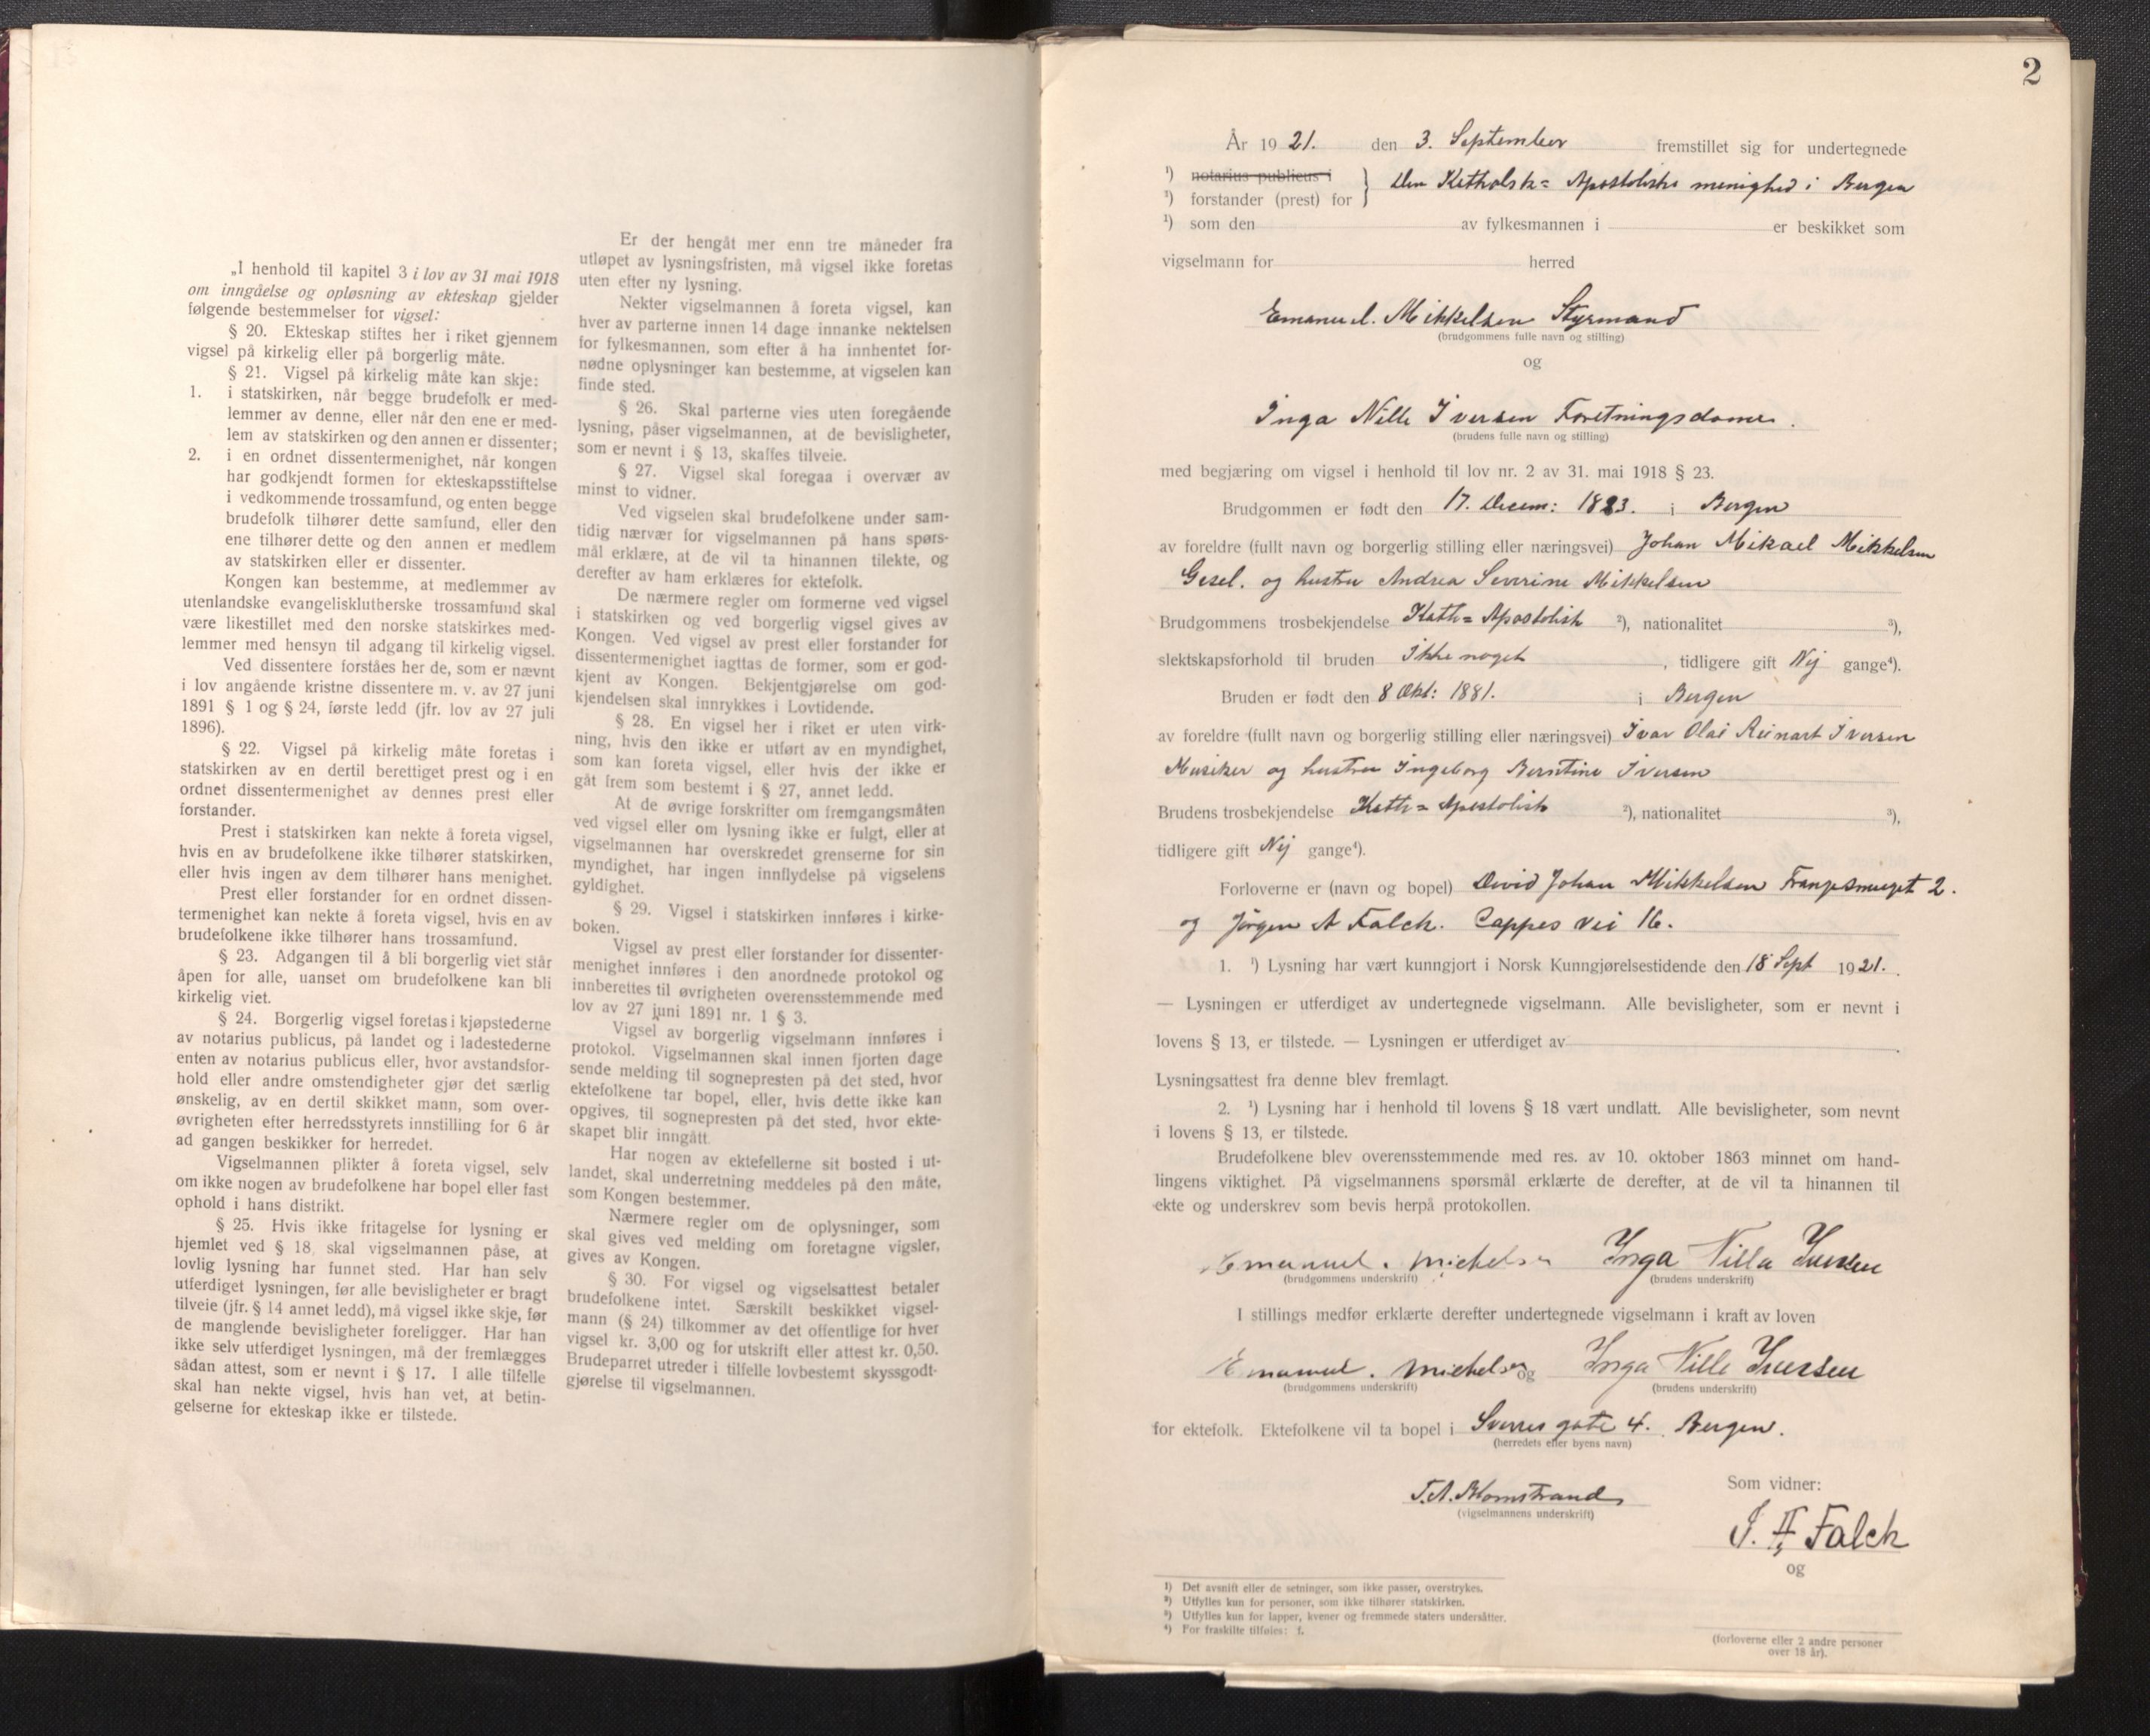 „I henhold til kapitel 3 i lov av 31 mai 1918
om inngåelse og opløsning av ekteskap gjelder
følgende bestemmelser for vigsel:
§ 20. Ekteskap stiftes her i riket gjennem
vigsel på kirkelig eller på borgerlig måte.
§ 21. Vigsel på kirkelig måte kan skje:
1. i statskirken, når begge brudefolk er med-
lemmer av denne, eller når den ene er med-
lem av statskirken og den annen er dissenter;
2. i en ordnet dissentermenighet, når kongen
har godkjendt formen for ekteskapsstiftelse
i vedkommende trossamfund, og enten begge
brudefolk tilhører dette samfund, eller den
ene tilhører dette og den annen er medlem
av statskirken eller er dissenter.
Kongen kan bestemme, at medlemmer av
utenlandske evangelisklutherske trossamfund skal
være likestillet med den norske statskirkes med-
lemmer med hensyn til adgang til kirkelig vigsel.
Ved dissentere forståes her de, som er nævnt
i lov angående kristne dissentere m. v. av 27 juni
1891 § 1 og § 24, første ledd (jfr. lov av 27 juli
1896).
§ 22. Vigsel på kirkelig måte foretas i
statskirken av en dertil berettiget prest og i en
ordnet dissentermenighet av dennes prest eller
forstander.
Prest i statskirken kan nekte å foreta vigsel,
hvis en av brudefolkene ikke tilhører statskirken,
eller hvis ingen av dem tilhører hans menighet.
Prest eller forstander for en ordnet dissen-
termenighet kan nekte å foreta vigsel, hvis en av
brudefolkene ikke tilhører hans trossamfund.
§ 23. Adgangen til å bli borgerlig viet står
åpen for alle, uanset om brudefolkene kan bli
kirkelig viet.
§ 24. Borgerlig vigsel foretas i kjøpstederne
av notarius publicus, på landet og i ladestederne
enten av notarius publicus eller, hvor avstandsfor-
hold eller andre omstendigheter gjør det særlig
ønskelig, av en dertil skikket mann, som over-
øvrigheten efter herredsstyrets innstilling for 6 år
ad gangen beskikker for herredet.
Vigselmannen plikter å foreta vigsel, selv
om ikke nogen av brudefolkene har bopel eller fast
ophold i hans distrikt.
§ 25. Hvis ikke fritagelse for lysning er
hjemlet ved § 18, skal vigselmannen påse, at
lovlig lysning har funnet sted. Har han selv
utferdiget lysningen, før alle bevisligheter er bragt
tilveie (jfr. § 14 annet ledd), må vigsel ikke skje, før
de manglende bevisligheter foreligger. Har han
ikke selv utferdiget lysningen, må der fremlægges
sådan attest, som er nevnt i § 17. I alle tilfelle
skal han nekte vigsel, hvis han vet, at betin-
gelserne for ekteskap ikke er tilstede.
Er der hengåt mer enn tre måneder fra
utløpet av lysningsfristen, må vigsel ikke foretas
uten efter ny lysning.
Nekter vigselmannen å foreta vigsel, kan
hver av parterne innen 14 dage innanke nektelsen
for fylkesmannen, som efter å ha innhentet for-
nødne oplysninger kan bestemme, at vigselen kan
finde sted.
§ 26. Skal parterne vies uten foregående
lysning, påser vigselmannen, at de bevisligheter,
som er nevnt i § 13, skaffes tilveie.
§ 27. Vigsel skal foregaa i overvær av
minst to vidner.
Ved vigselen skal brudefolkene under sam-
tidig nærvær for vigselmannen på hans spørs-
mål erklære, at de vil ta hinannen tilekte, og
derefter av ham erklæres for ektefolk.
De nærmere regler om formerne ved vigsel
i statskirken og ved borgerlig vigsel gives av
Kongen. Ved vigsel av prest eller forstander for
dissentermenighet iagttas de former, som er god-
kjent av Kongen. Bekjentgjørelse om god-
kjendelsen skal innrykkes i Lovtidende.
§ 28. En vigsel her i riket er uten virk-
ning, hvis den ikke er utført av en myndighet,
som kan foreta vigsel, eller hvis der ikke er
gåt frem som bestemt i § 27, annet ledd.
At de øvrige forskrifter om fremgangsmåten
ved vigsel eller om lysning ikke er fulgt, eller at
vigselmannen har overskredet grenserne for sin
myndighet, har ingen innflydelse på vigselens
gyldighet.
§ 29. Vigsel i statskirken innføres i kirke-
boken.
Vigsel av prest eller forstander for dissenter-
menighet innføres i den anordnede protokol og
innberettes til øvrigheten overensstemmende med
lov av 27 juni 1891 nr. 1 § 3.
Vigsel av borgerlig vigselmann innføres i
protokol. Vigselmannen skal innen fjorten dage
sende melding til sognepresten på det sted, hvor
ektefolkene tar bopel, eller, hvis dette ikke kan
opgives, til sognepresten på det sted, hvor ekte-
skapet blir inngått.
Har nogen av ektefellerne sit bosted i ut-
landet, skal underretning meddeles på den måte,
som Kongen bestemmer.
Nærmere regler om de oplysninger, som
skal gives ved melding om foretagne vigsler,
gives av Kongen.
§ 30. For vigsel og vigselsattest betaler
brudefolkene intet. Særskilt beskikket vigsel-
mann (§ 24) tilkommer av det offentlige for hver
vigsel kr. 3,00 og for utskrift eller attest kr. 0,50.
Brudeparret utreder i tilfelle lovbestemt skyssgodt-
gjørelse til vigselmannen.
2
År 1921. den 3. September fremstillet sig for undertegnede
¹) notarius publicus i
¹) forstander (prest) for } Den Katholsk= Apostoliske menighed i Bergen
¹) som den av fylkesmannen i er beskikket som
vigselmann for herred
Emanuel. Mikkelsen Styrmand
(brudgommens fulle navn og stilling)
og
Inga Nille Iversen Foretningsdame.
(brudens fulle navn og stilling)
med begjæring om vigsel i henhold til lov nr. 2 av 31. mai 1918 § 23.
Brudgommen er født den 17. Decem: 1883. i Bergen
av foreldre (fullt navn og borgerlig stilling eller næringsvei) Johan Mikael Mikkelsen
Gesel. og hustru Andrea Severine Mikkelsen
Brudgommens trosbekjendelse Kath= Apostolisk ²), nationalitet ³),
slektskapsforhold til bruden Ikke noget , tidligere gift Nej gange⁴).
Bruden er født den 8 Okt: 1881. i Bergen
av foreldre (fullt navn og borgerlig stilling eller næringsvei) Ivar Olai Reinart Iversen
Musiker og hustru Ingeborg Berntine Iversen
Brudens trosbekjendelse Kath= Apostolisk ²), nationalitet ³),
tidligere gift Nej gange⁴).
Forloverne er (navn og bopel) David Johan Mikkelsen 2.
og Jørgen A Falck. Cappes vei 16.
1. ¹) Lysning har vært kunngjort i Norsk Kunngjørelsestidende den 18 Sept 1921.
— Lysningen er utferdiget av undertegnede vigselmann. Alle bevisligheter, som er nevnt i
lovens § 13, er tilstede. — Lysningen er utferdiget av
Lysningsattest fra denne blev fremlagt.
2. ¹) Lysning har i henhold til lovens § 18 vært undlatt. Alle bevisligheter, som nevnt
i lovens § 13, er tilstede.
Brudefolkene blev overensstemmende med res. av 10. oktober 1863 minnet om hand-
lingens viktighet. På vigselmannens spørsmål erklærte de derefter, at de vil ta hinannen til
ekte og underskrev som bevis herpå protokollen.
Emanuel. Michelsen Inga Nille Iversen
(brudgommens underskrift) (brudens underskrift)
I stillings medfør erklærte derefter undertegnede vigselmann i kraft av loven
Emanuel. Michelsen og Inga Nille Iversen
(brudgommens underskrift) (brudens underskrift)
for ektefolk. Ektefolkene vil ta bopel i Sverres gate 4. Bergen.
(herredets eller byens navn)
T.A. Blomstrand
(vigselmannens underskrift)
Som vidner:
Falck
og
(forloverne eller 2 andre personer
over 18 år).
¹) Det avsnitt eller de setninger, som ikke passer, overstrykes.
²) Utfylles kun for personer, som ikke tilhører statskirken.
³) Utfylles kun for lapper, kvener og fremmede staters undersåtter.
⁴) For fraskilte tilføies: f.